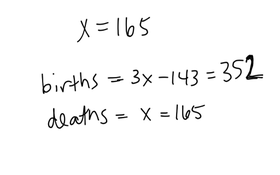 x = 165
births = 3x - 143 = 352
deaths = x = 165